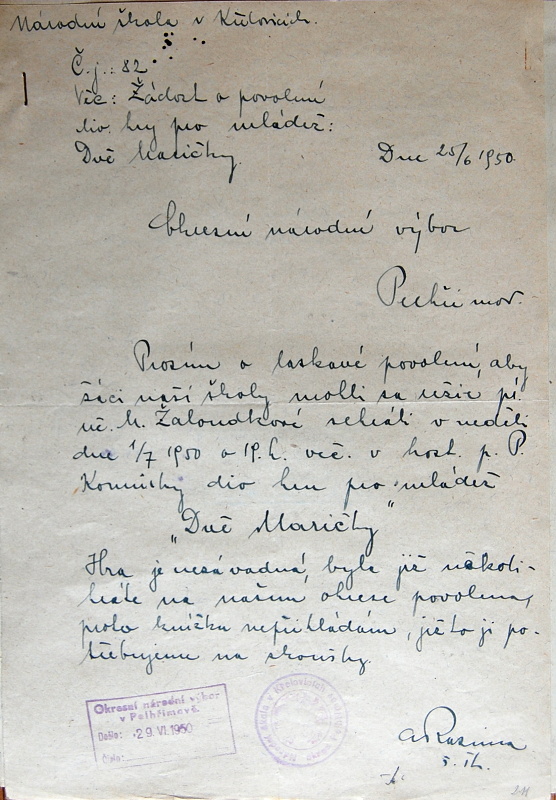 Národní škola v Křelovicích.
Č. j.: 82
Věc: Žádost o povolení
div. hry pro mládež:
Dvě Maričky.
Dne 25/6 1950.
Okresní národní výbor
Pelhřimov.
Prosím o laskavé povolení, aby
žáci naší školy mohli za režie pí
uč. M. Žaloudkové sehráti v neděli
dne 1/7 1950 o 19. h. več. v host. p. P.
div. hru pro mládež
"Dvě Maričky"
Hra je nezávadná, byla již několi-
kráte na našem okrese povolena,
proto knížku nepřikládám, ježto ji po-
třebujeme na zkoušky.
Okresní národní výbor
v Pelhřimově.
Došlo: 29.VI.1950
Číslo: